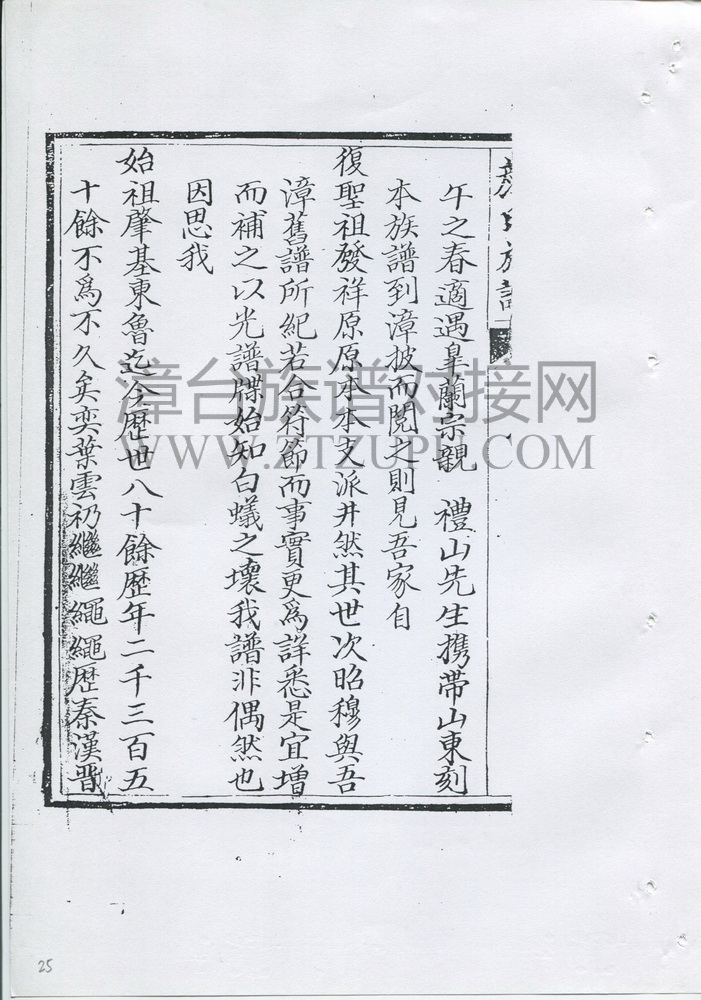 氏族譜
午之春適遇臯蘭宗親 禮山先生携帶山東刻
本族譜到漳披而閱之則見吾家自
復聖祖發祥原原本本支派井然其世次昭穆與吾
漳舊譜所紀若合符節而事實更爲詳悉是宜增
而補之以光譜牒始知白蟻之壞我譜非偶然也
因思我
始祖肇基東魯迄今歷世八十餘歷年二千三百五
十餘不爲不久矣奕葉雲礽繼繼繩繩歷秦漢晋
漳台族谱对接网
WWW.ZTZUPU.COM
25